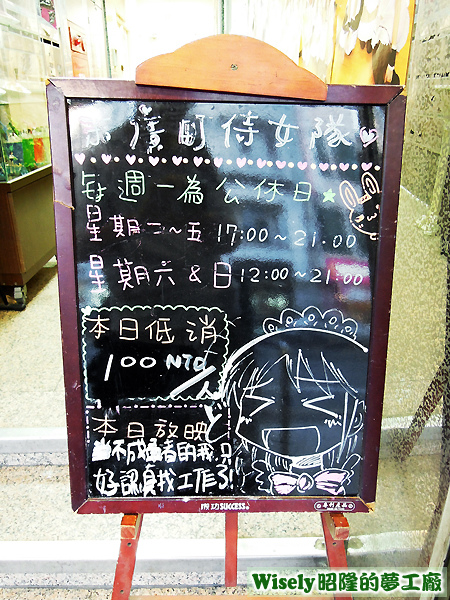 町侍女隊
每週一為公休日
星期二~五 17:00~21:00
星期六&日 12:00~21:00
本日低消
100 NTD
/人
本日放映
不成 者的我只
好認真找工作了!
成功SUCCESS
專利產品
Wisely昭隆的夢工廠